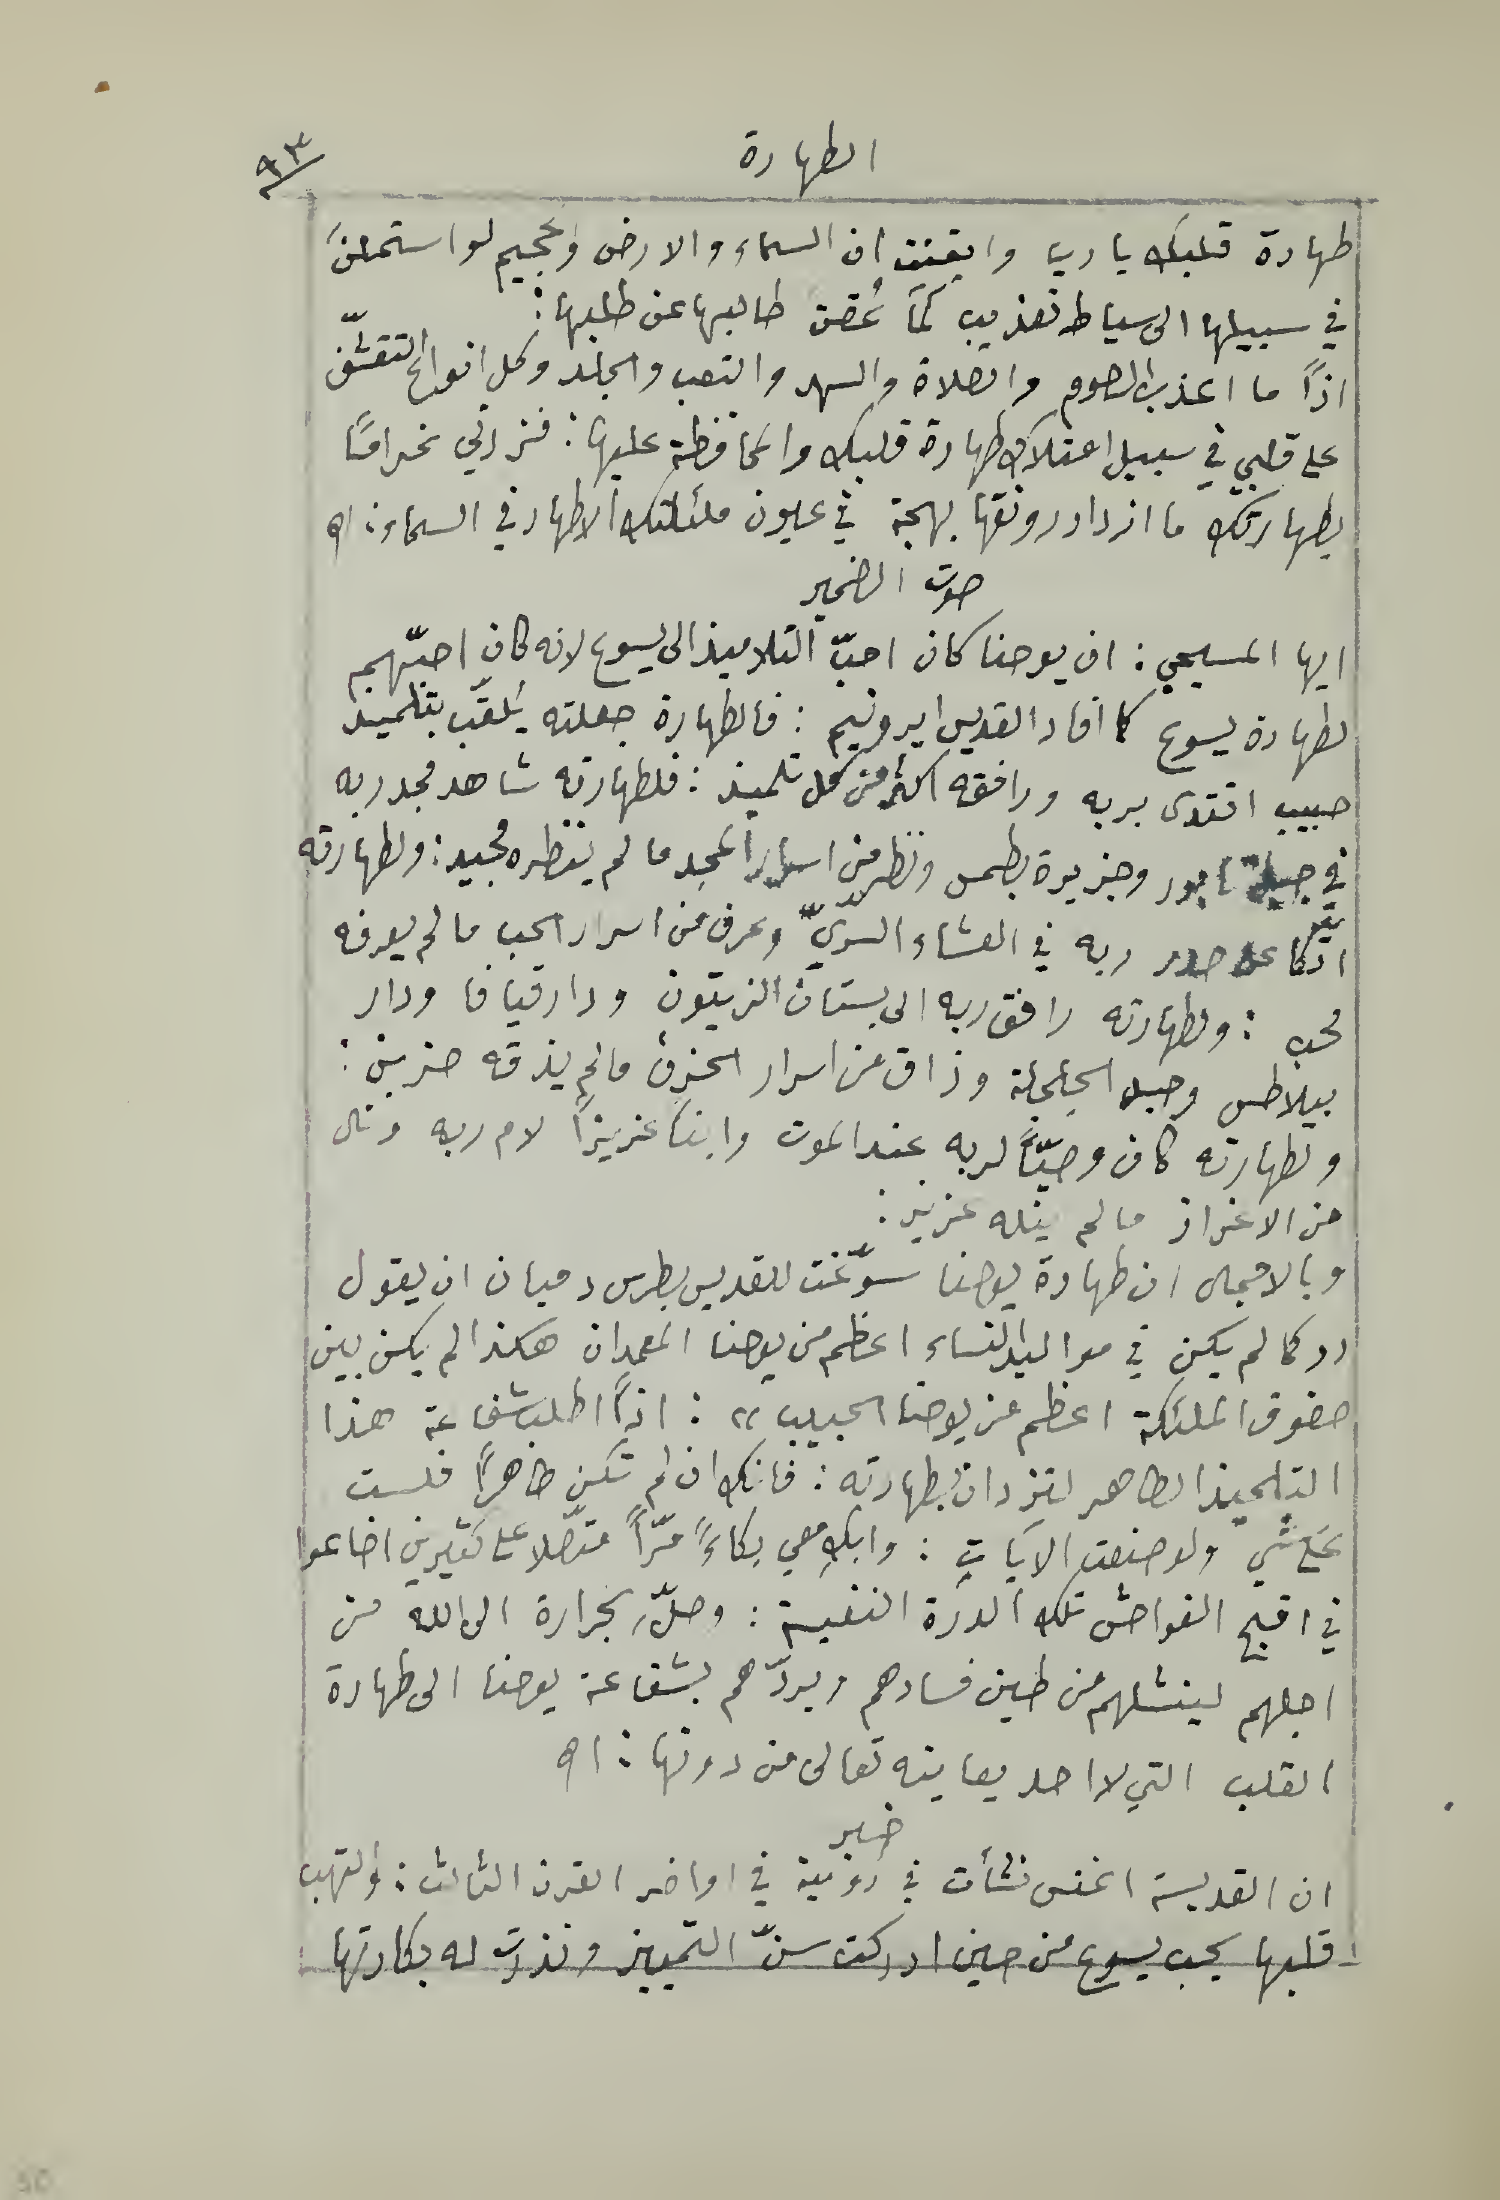 الطهارة
٩٣
طهارة قلبك يا رب وايقنت ان السماء والارض والجحيم لو استحلنَ
في سبيلها الى سياط تعذيب لما عُقن طالبها عن طلبها:
اذاً ما اعذب الصوم والصلاة والسهر والتعب والجلد وكل انواع التقشّف
على قلبي في سبيل امتلاك طهارة قلبك والمحافظة عليها: فزدني غرامًا
بطهارتك ما ازداد رونقها بهجة في عيون ملئكتك الاطهار في السماء: اه
صوت الضمير
ايها المسيحي: ان يوحنا كان احبّ التلاميذ الى يسوع لانه كان احبّهم
لطهارة يسوع كما افاد القديس ايرونيم: فالطهارة جعلته يُلقَّب بتلميذ
حبيب اقتدى بربه ورافقه اكثر من كل تلميذ: فلطهارته شاهد مجد ربه
في جبل تابور وجزيرة بطمس ونظر من اسرار المجد ما لم ينظره مجيد: ولطهارته
اتّكأ على صدر ربه في العشاء السرّيّ وعرف من اسرار الحب ما لم يعرفه
محب: ولطهارته رافق ربه الى بستان الزيتون ودار قيافا ودار
بيلاطس وجبل الجلجلة وذاق من اسرار الحزن ما لم يذقه حزين:
ولطهارته كان وصيّاً لربه عند الموت وابناً عزيزاً لام ربه ونال
من الاعزاز ما لم ينله عزيز:
وبالاجمال ان طهارة يوحنا سوّغت للقديس بطرس دميان ان يقول
((كما لم يكن في مواليد النساء اعظم من يوحنا المعمدان هكذا لم يكن بين
صفوف الملئكة اعظم من يوحنا الحبيب)): اذاً اطلب شفاعة هذا
التلميذ الطاهر لتزدان بطهارته: فانك ان لم تكن طاهراً فلست
على شي ولو صنعت الايات: وابكِ معي بكاءً مرّاً متصّلا على كثيرين اضاعوا
في اقبح الفواحش تلك الدرة النفيسة: وصلِّ بحرارة الى الله من
اجلهم لينشلهم من طين فسادهم ويردّهم بشفاعة يوحنا الى طهارة
القلب التي لا احد يعاينه تعالى من دونها: اه
خبر
ان القديسة اغنس نشأت في رومية في اواخر القرن الثالث: والتهب
قلبها بحب يسوع من حين ادركت سنّ التمييز ونذرت له بكارتها